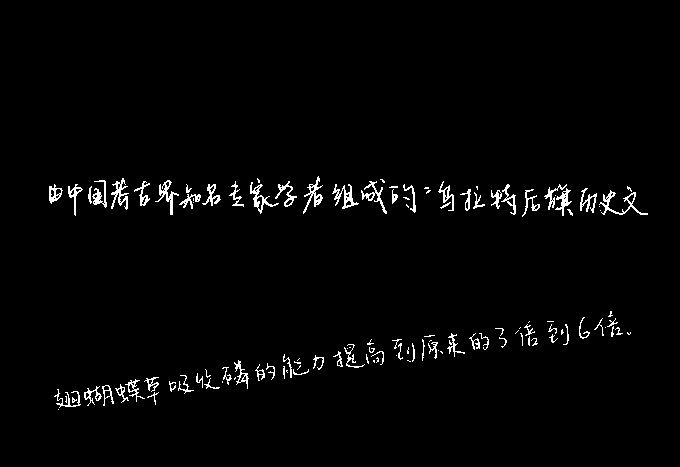 由中国考古界知名专家学者组成的“乌拉特后旗历史文
翅蝴蝶草吸收磷的能力提高到原来的3倍到6倍。